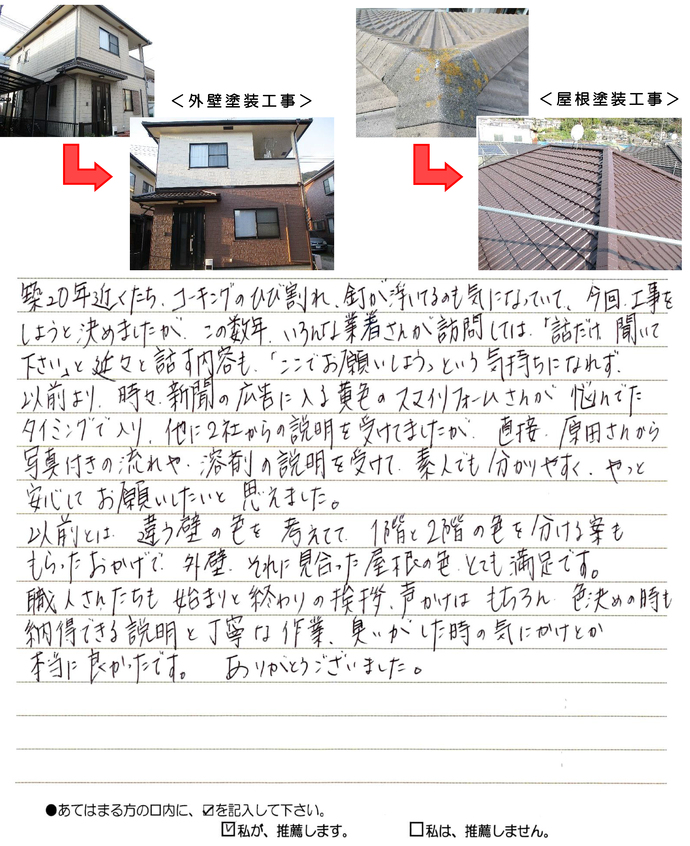 ＜外壁塗装工事＞
＜屋根塗装工事＞
築20年近くたち、コーキングのひび割れ、釘が浮いてるのも気になっていて、今回、工事を
しようと決めましたが、この数年、いろんな業者さんが訪問しては、「話だけ聞いて
下さい」と延々と話す内容も、「ここでお願いしよう」という気持ちになれず、
以前より、時々、新聞の広告に入る黄色のスマイリフォームさんが悩んでた
タイミングで入り、他に2社からの説明を受けてましたが、直接、原田さんから
写真付きの流れや、溶剤の説明を受けて、素人でも分かりやすく、やっと
安心してお願いしたいと思えました。
以前とは、違う壁の色を考えてて、1階と2階の色を分ける案も
もらったおかげで、外壁、それに見合った屋根の色、とても満足です。
職人さんたちも始まりと終わりの挨拶、声かけはもちろん、色決めの時も
納得できる説明と丁寧な作業、臭いがした時の気にかけとか
本当に良かったです。　ありがとうございました。
●あてはまる方の口内に、☑を記入して下さい。
☑私が、推薦します。　□私は、推薦しません。